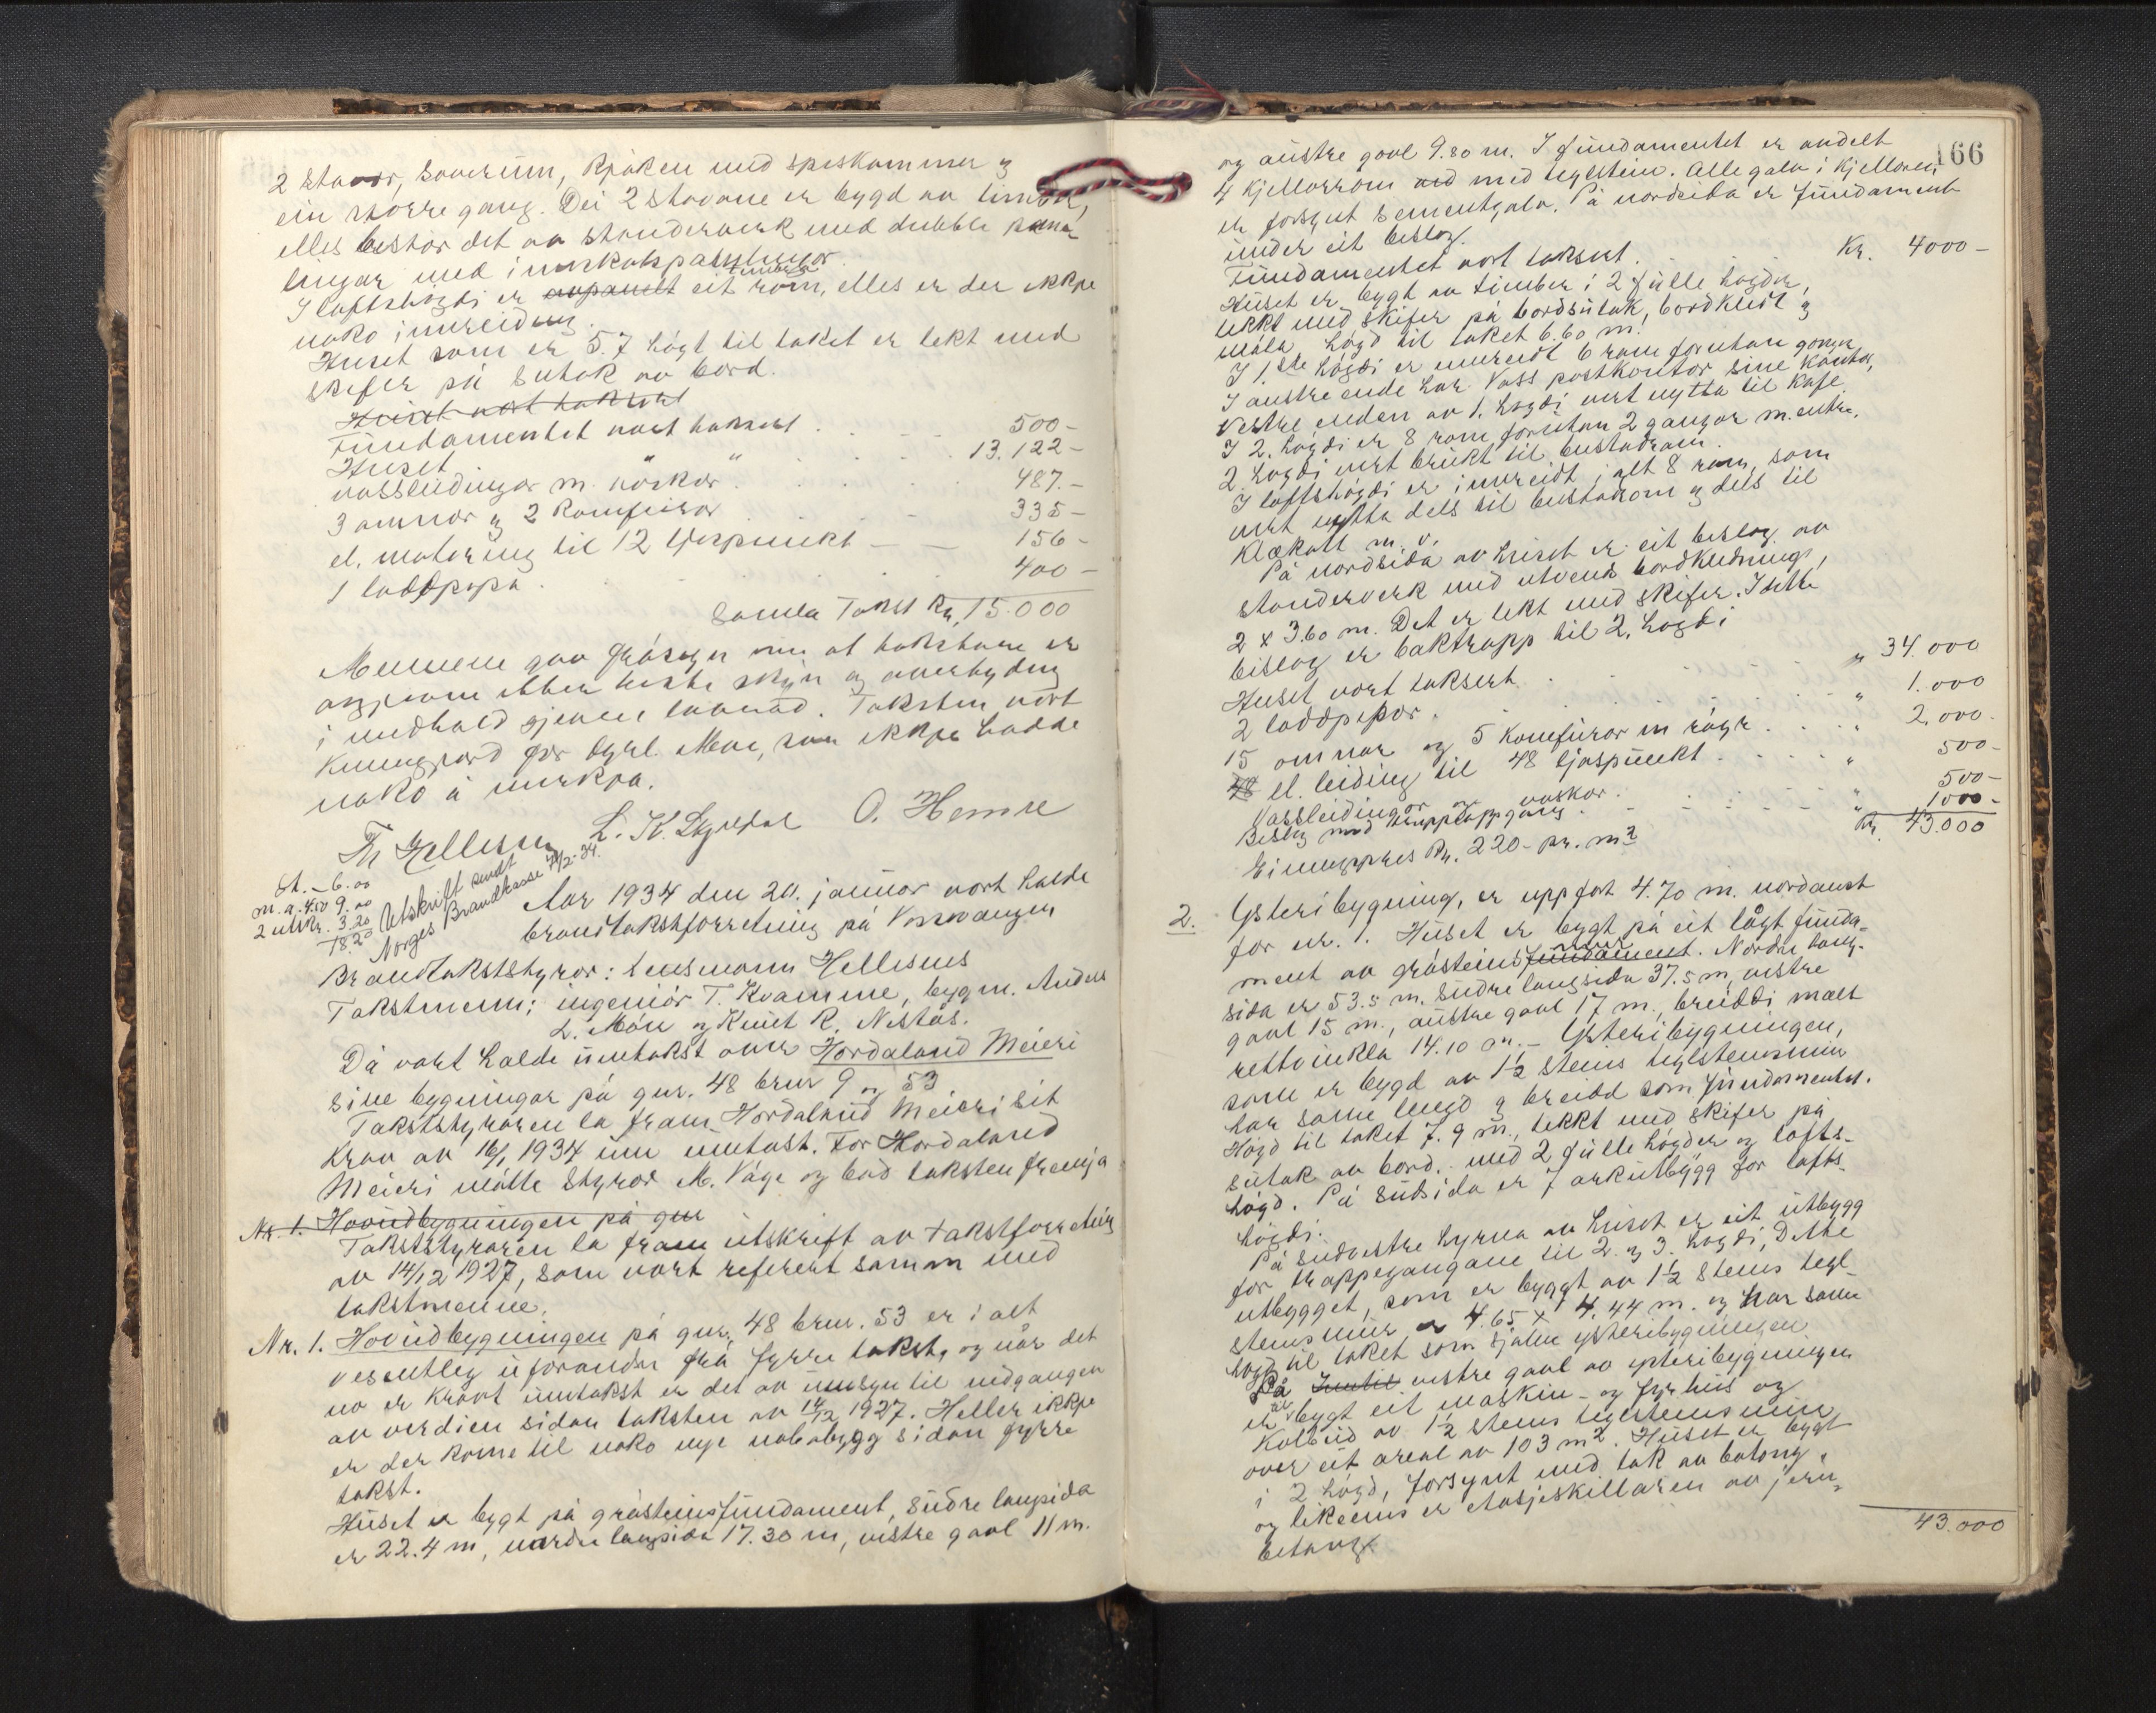 2 stovor, soverum, kjøken med speskammer og
ein større gang. Dei 2 stovone er bygd av timber,
elles består det av standerverk med dubble pane-
lingar med
I loftshøgdi er avpanelt eit timbra rom, elles er der ikkje
noko innreiding.
Huset som er 5.7 høgt til taket er tekt med
skifer på sutak av bord.
Huset vart taksert
Fundamentet vart taksert . . . 500-
Huset " " . . . 13.122-
vassleidingar m. vaskar . . . 487.-
3 omnar og 2 komfurar . . . 335-
el. montering til 12 ljospunkt - - 156-
1 loddpipa . . . 400-
Samla Takst Kr. 15.000
Mennene gav fråsegn um at takstane er
avgjevne etter beste skjøn og overtyding
i medhald av gjevne lovnad. Taksten vart
kunngjord for byrl. Møe, som ikkje hadde
noko å merkja.
Th Hellesnes L. K. Skjeldal O. Hemre
St. - 6.00
m. a. 4.50 9.00
2 utskr. 3.20
18.20
Utskrift sendt
Norges Brandkasse 7/2-34.
Aar 1934 den 20. januar vart halde
brandtakstforretning på Vossevangen
Brandtakststyrar: lensmann Hellesnes
Takstmenn: ingeniør T. Kvamme, bygm. Anders
L. Møn og Knut K. Nestås.
Då vart halde umtakst over Hordaland Meieri
sine bygningar på gnr. 48 brnr 9 og 53.
Takststyraren la fram Hordaland Meieri sit
krav av 16/1 1934 um umtakst. For Hordaland
Meieri møtte styrar M. Våge og bad taksten fremja
Nr. 1. Hovudbygningen på gnr
Takststyraren la fram utskrift av takstforretning
av 14/12 1927, som vart referert saman med
takstmenne.
Nr. 1. Hovudbygningen på gnr. 48 brnr. 53 er i alt
vesentleg uforandra frå fyrre takst, og når det
no er kravt umtakst er det av umsyn til nedgangen
av verdien sidan taksten av 14/12 1927. Heller ikkje
er der kome til noko nye nabobygg sidan fyrre
takst.
Huset er bygt på gråsteinsfundament, sudre langsida
er 22.4 m, nordre langsida 17.30 m, vestre gavl 11 m.
166
og austre gavl 9.80 m. I fundamentet er avdelt
4 kjellarrom med teglstein. Alle golv i kjellaren
er forsynt sementgolv. På nordsida er fundament
under eit bislag.
Fundamentet vart taksert . Kr. 4000-
Huset er bygt av timber i 2 fulle høgder,
tekkt med skifer på bordsutak, bordkledt og
måla, høgd til taket 6.60 m.
I 1.ste høgdi er innreidt 6 rom foruten gonger
I austre ende har Voss postkontor sine kontor,
Vestre enden av 1. høgdi vert nytta til kafe.
I 2. høgdi er 8 rom, forutan 2 gangar m. entre.
2. høgdi vert brukt til bustadrom.
I loftshøgdi er innreidt i alt 8 rom, som
vert nytta dels til bustadrom og dels til
klækott m. v.
På nordsida av huset er eit bislag av
standerverk med utvendig bordkledning,
2 x 3.60 m. Det er tekt med skifer. I dette
bislag er baktrapp til 2. høgdi
Huset vart taksert . . . " 34.000
2 loddpipor . . . " 1.000
15 omnar og 5 komfurar m røyr . . . " 2.000.
48 el. leiding til 48 ljospunkt . . . " 500-
Vassleidingar og vaskar . . . " 500-
Bislag med trappuppgang . . . " 1000-
Kr. 43.000
Einingspris kr. 220- pr. m²
2. Ysteribygning, er uppført 4.70 m. nordaust
for nr. 1. Huset er bygt på eit lågt funda-
ment av gråsteinsfundament mur. Nordre lang-
sida er 53.5 m. sudre langsida 37.5 m, vestre
gavl 15 m., austre gavl 17 m., breiddi mælt
rettvinkla 14.10 m. - Ysteribygningen,
som er bygd av 1½ steins teglsteinsmur
har same lengd og breidd som fundamentet.
Høgd til taket 7.9 m., tekkt med skifer på
sutak av bord, med 2 fulle høgder og lofts-
høgd. På sudsida er 7 arkutbygg for lofts-
høgdi.
På sudvestre hyrna av huset er eit utbygg
for trappegangane til 2. og 3. høgdi, Dette
utbygget, som er byggt av 1½ steins tegl-
steinsmur er 4.65 x 4.44 m. og har same
høgd til taket som sjølve ysteribygningen
På vestre gavl av ysteribygningen
er bygt eit maskin- og fyrhus og
kolbud av 1½ steins teglsteinsmur
over eit areal av 103 m². Huset er bygt
i 2 høgd, forsynt med tak av betong,
og likeeins er etasjeskillaren av jern-
betong
43.000